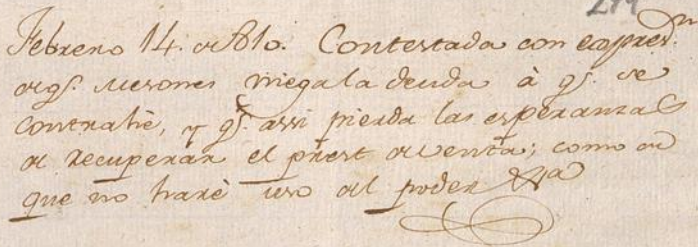 279
Febrero 14. de 810. Contestada con expres.on
de q.e Mesones niega la deuda à q.e se
contrahè, y q.e assi pierda las esperanzas
de recuperar el prest de venta; como de
que no harè uso del poder